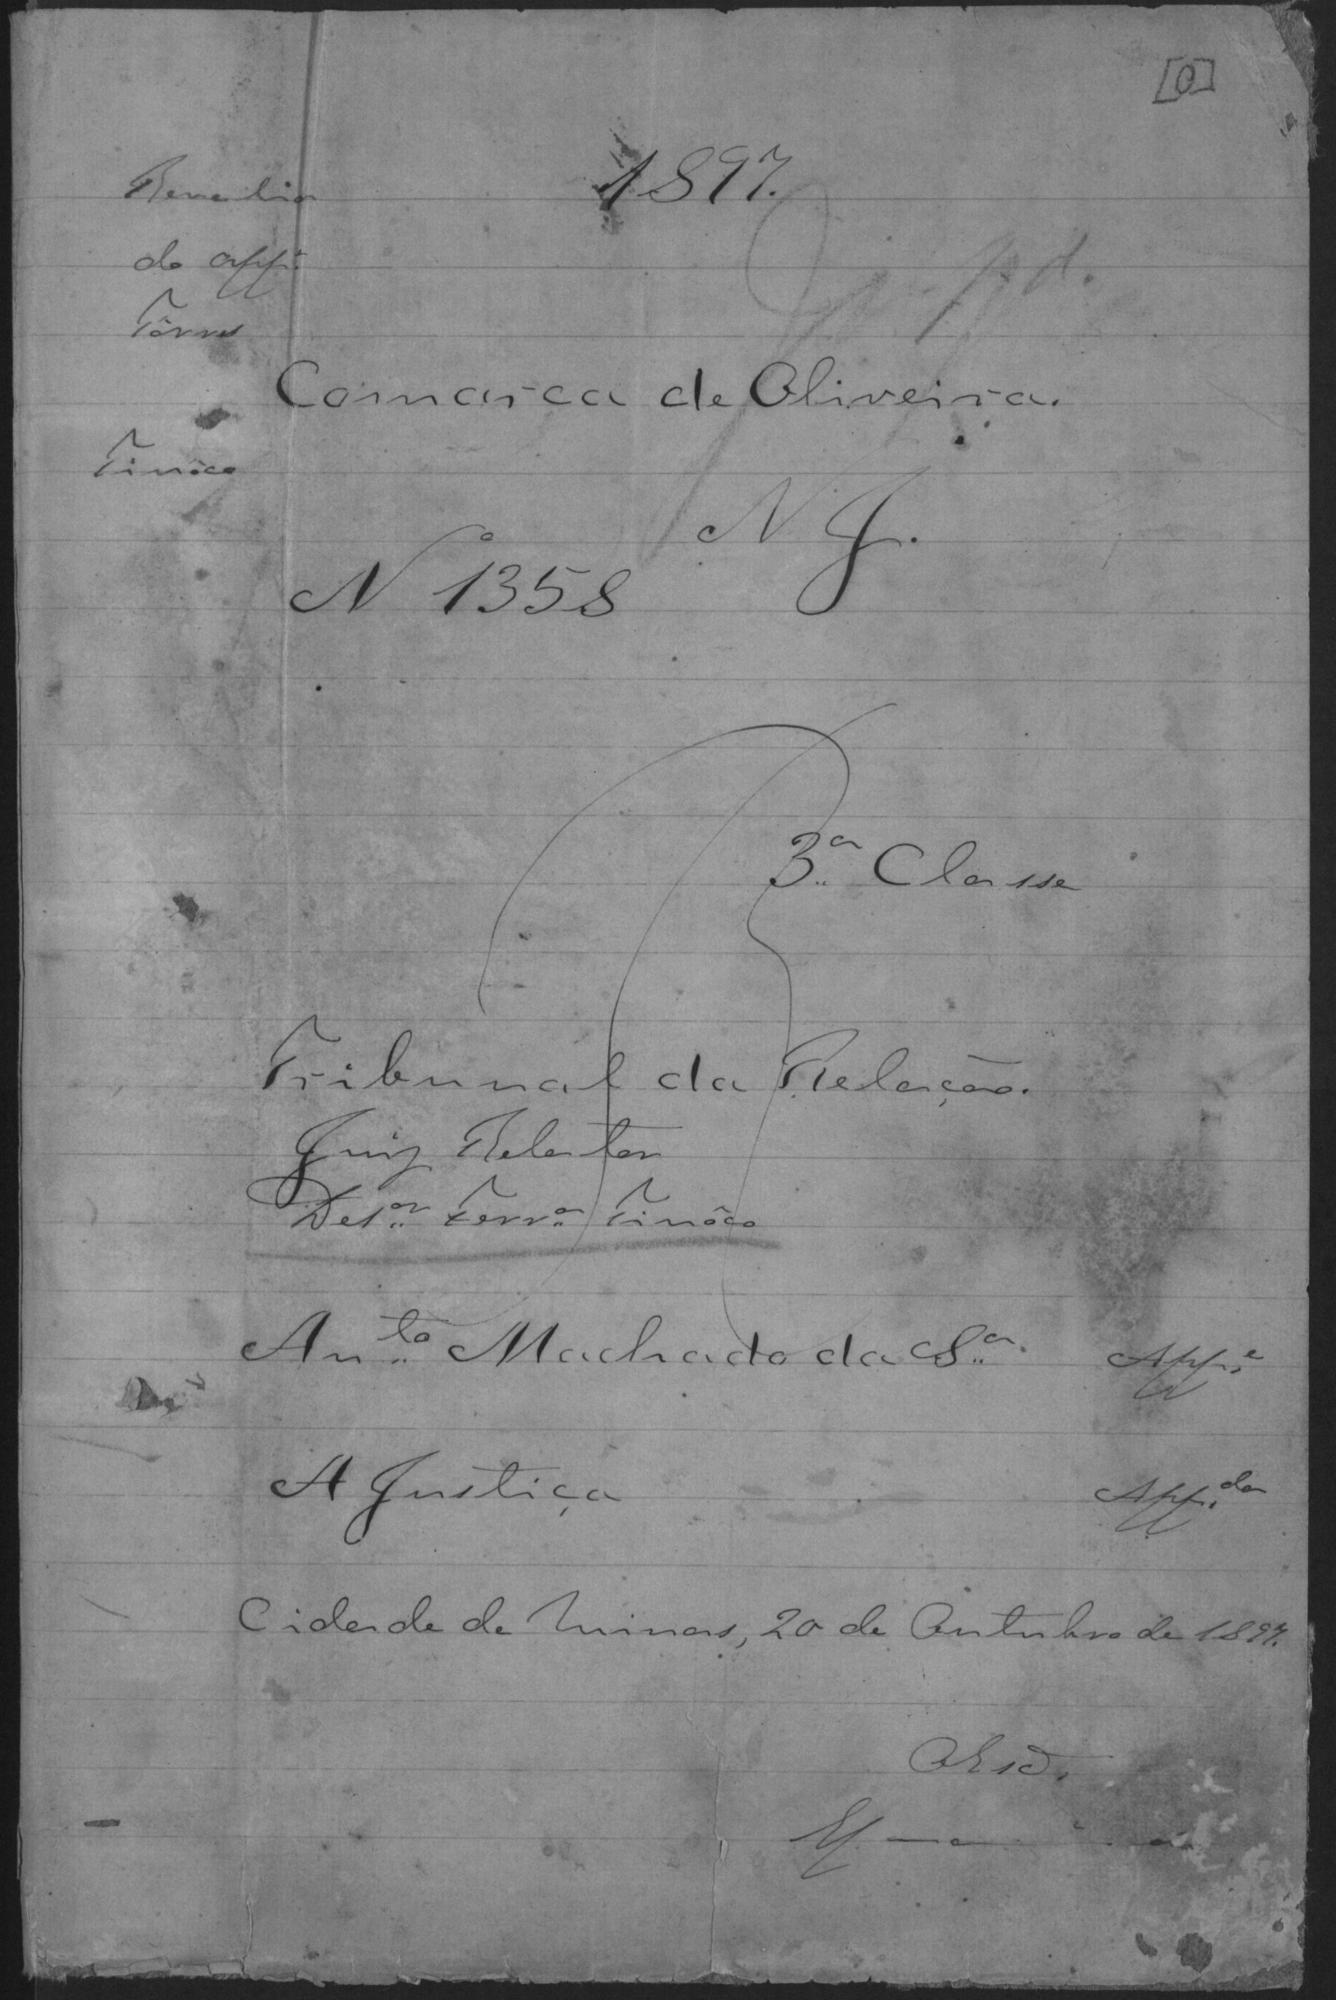 [0]
1897.
do app.
Tôrres
Comarca de Oliveira.
Tinôco
N. J.
Nº 1358
3ª Classe
Tribunal da Relação.
Juiz Relator
Desor Ferra Tinôco
Anto Machado da Sa Appe
A Justiça Appda
Cidade de Minas, 20 de Outubro de 1897.
O Esc.